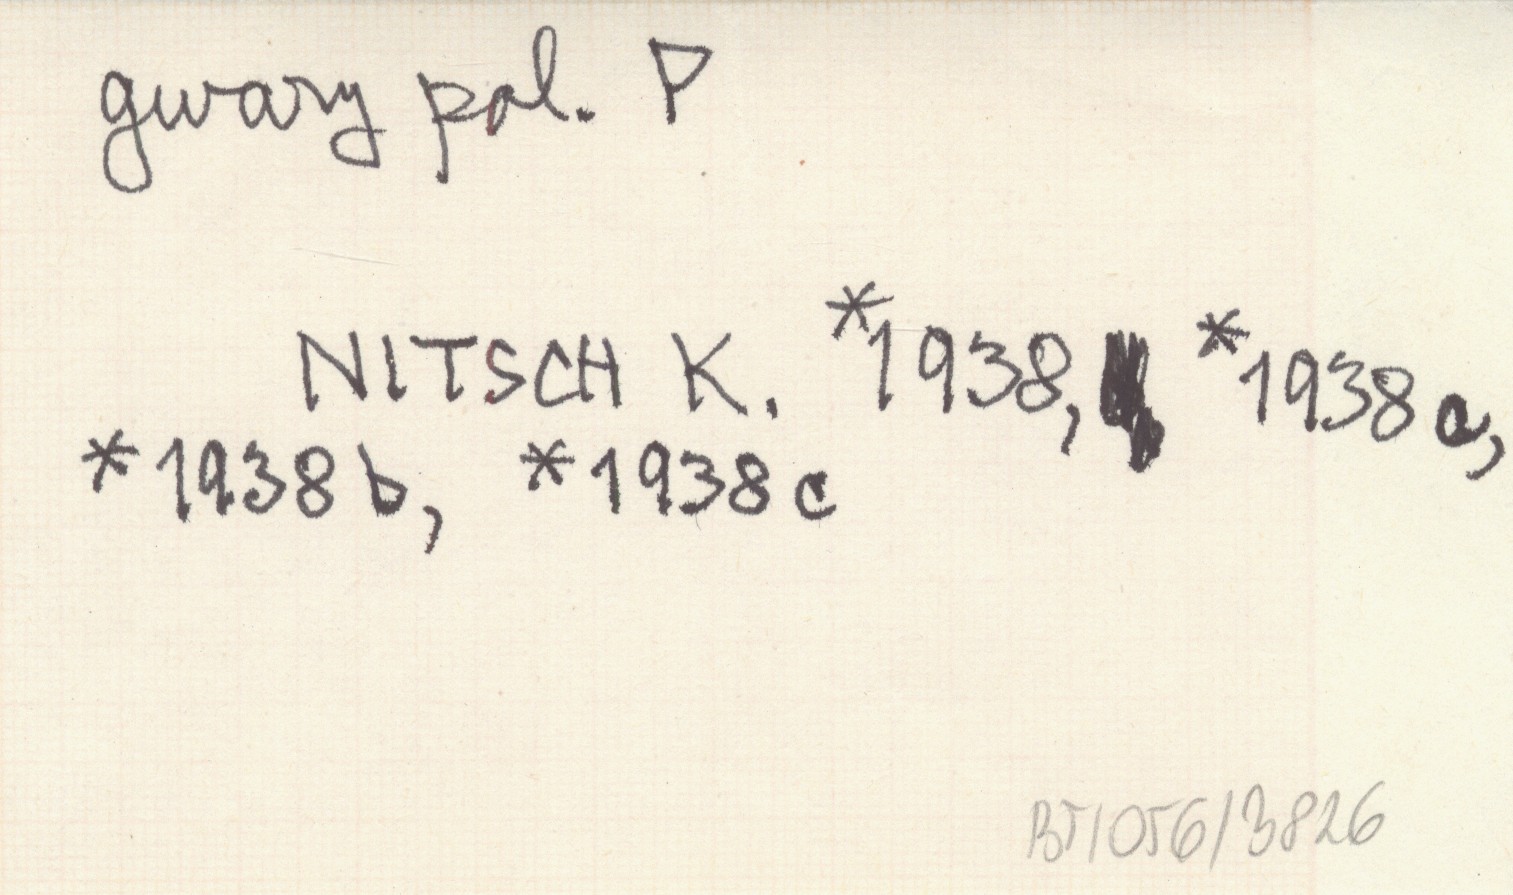 gwary pol. P
NITSCH K. *1938, *1938 a,
*1938 b, *1938 c
BT/056/3826